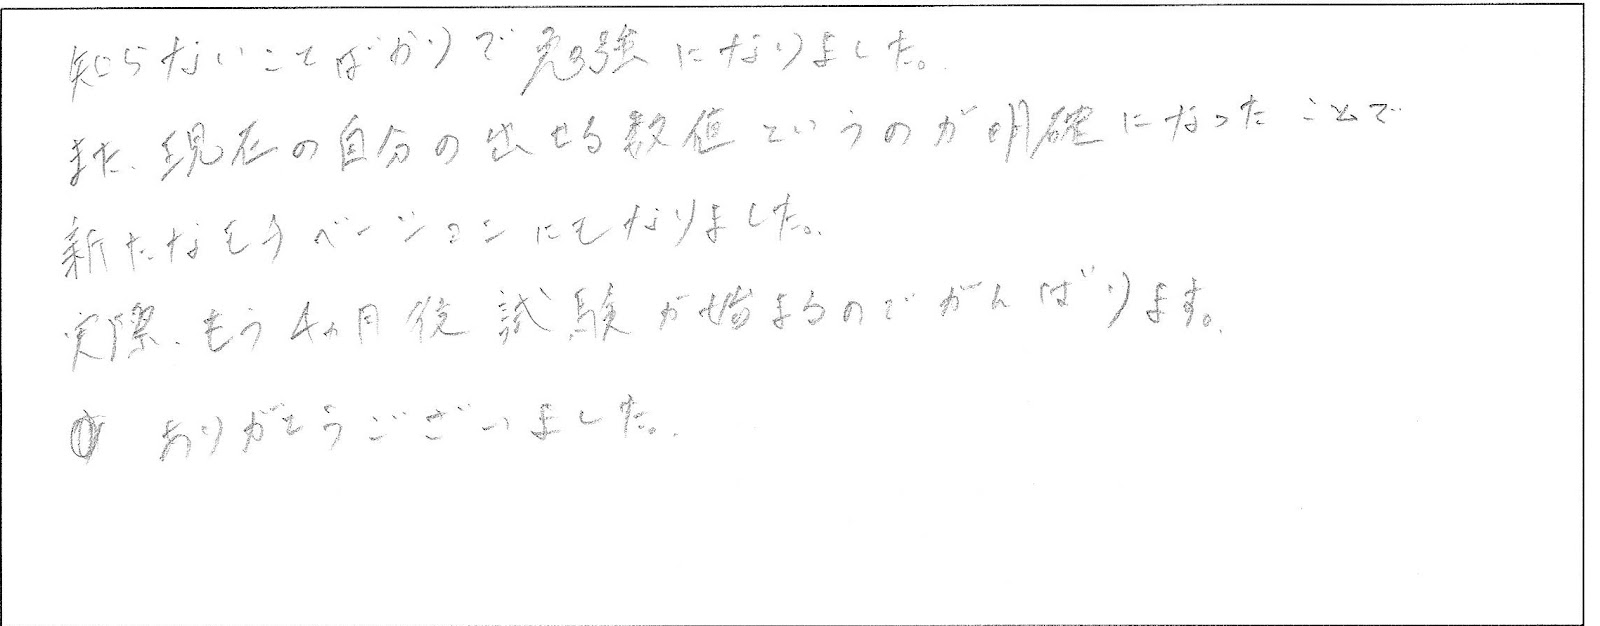 知らないことばかりで勉強になりました。
また、現在の自分の出せる数値というのが明確になったことで
新たなモチベーションにもなりました。
実際、もう4ヵ月後試験が始まるのでがんばります。
ありがとうございました。